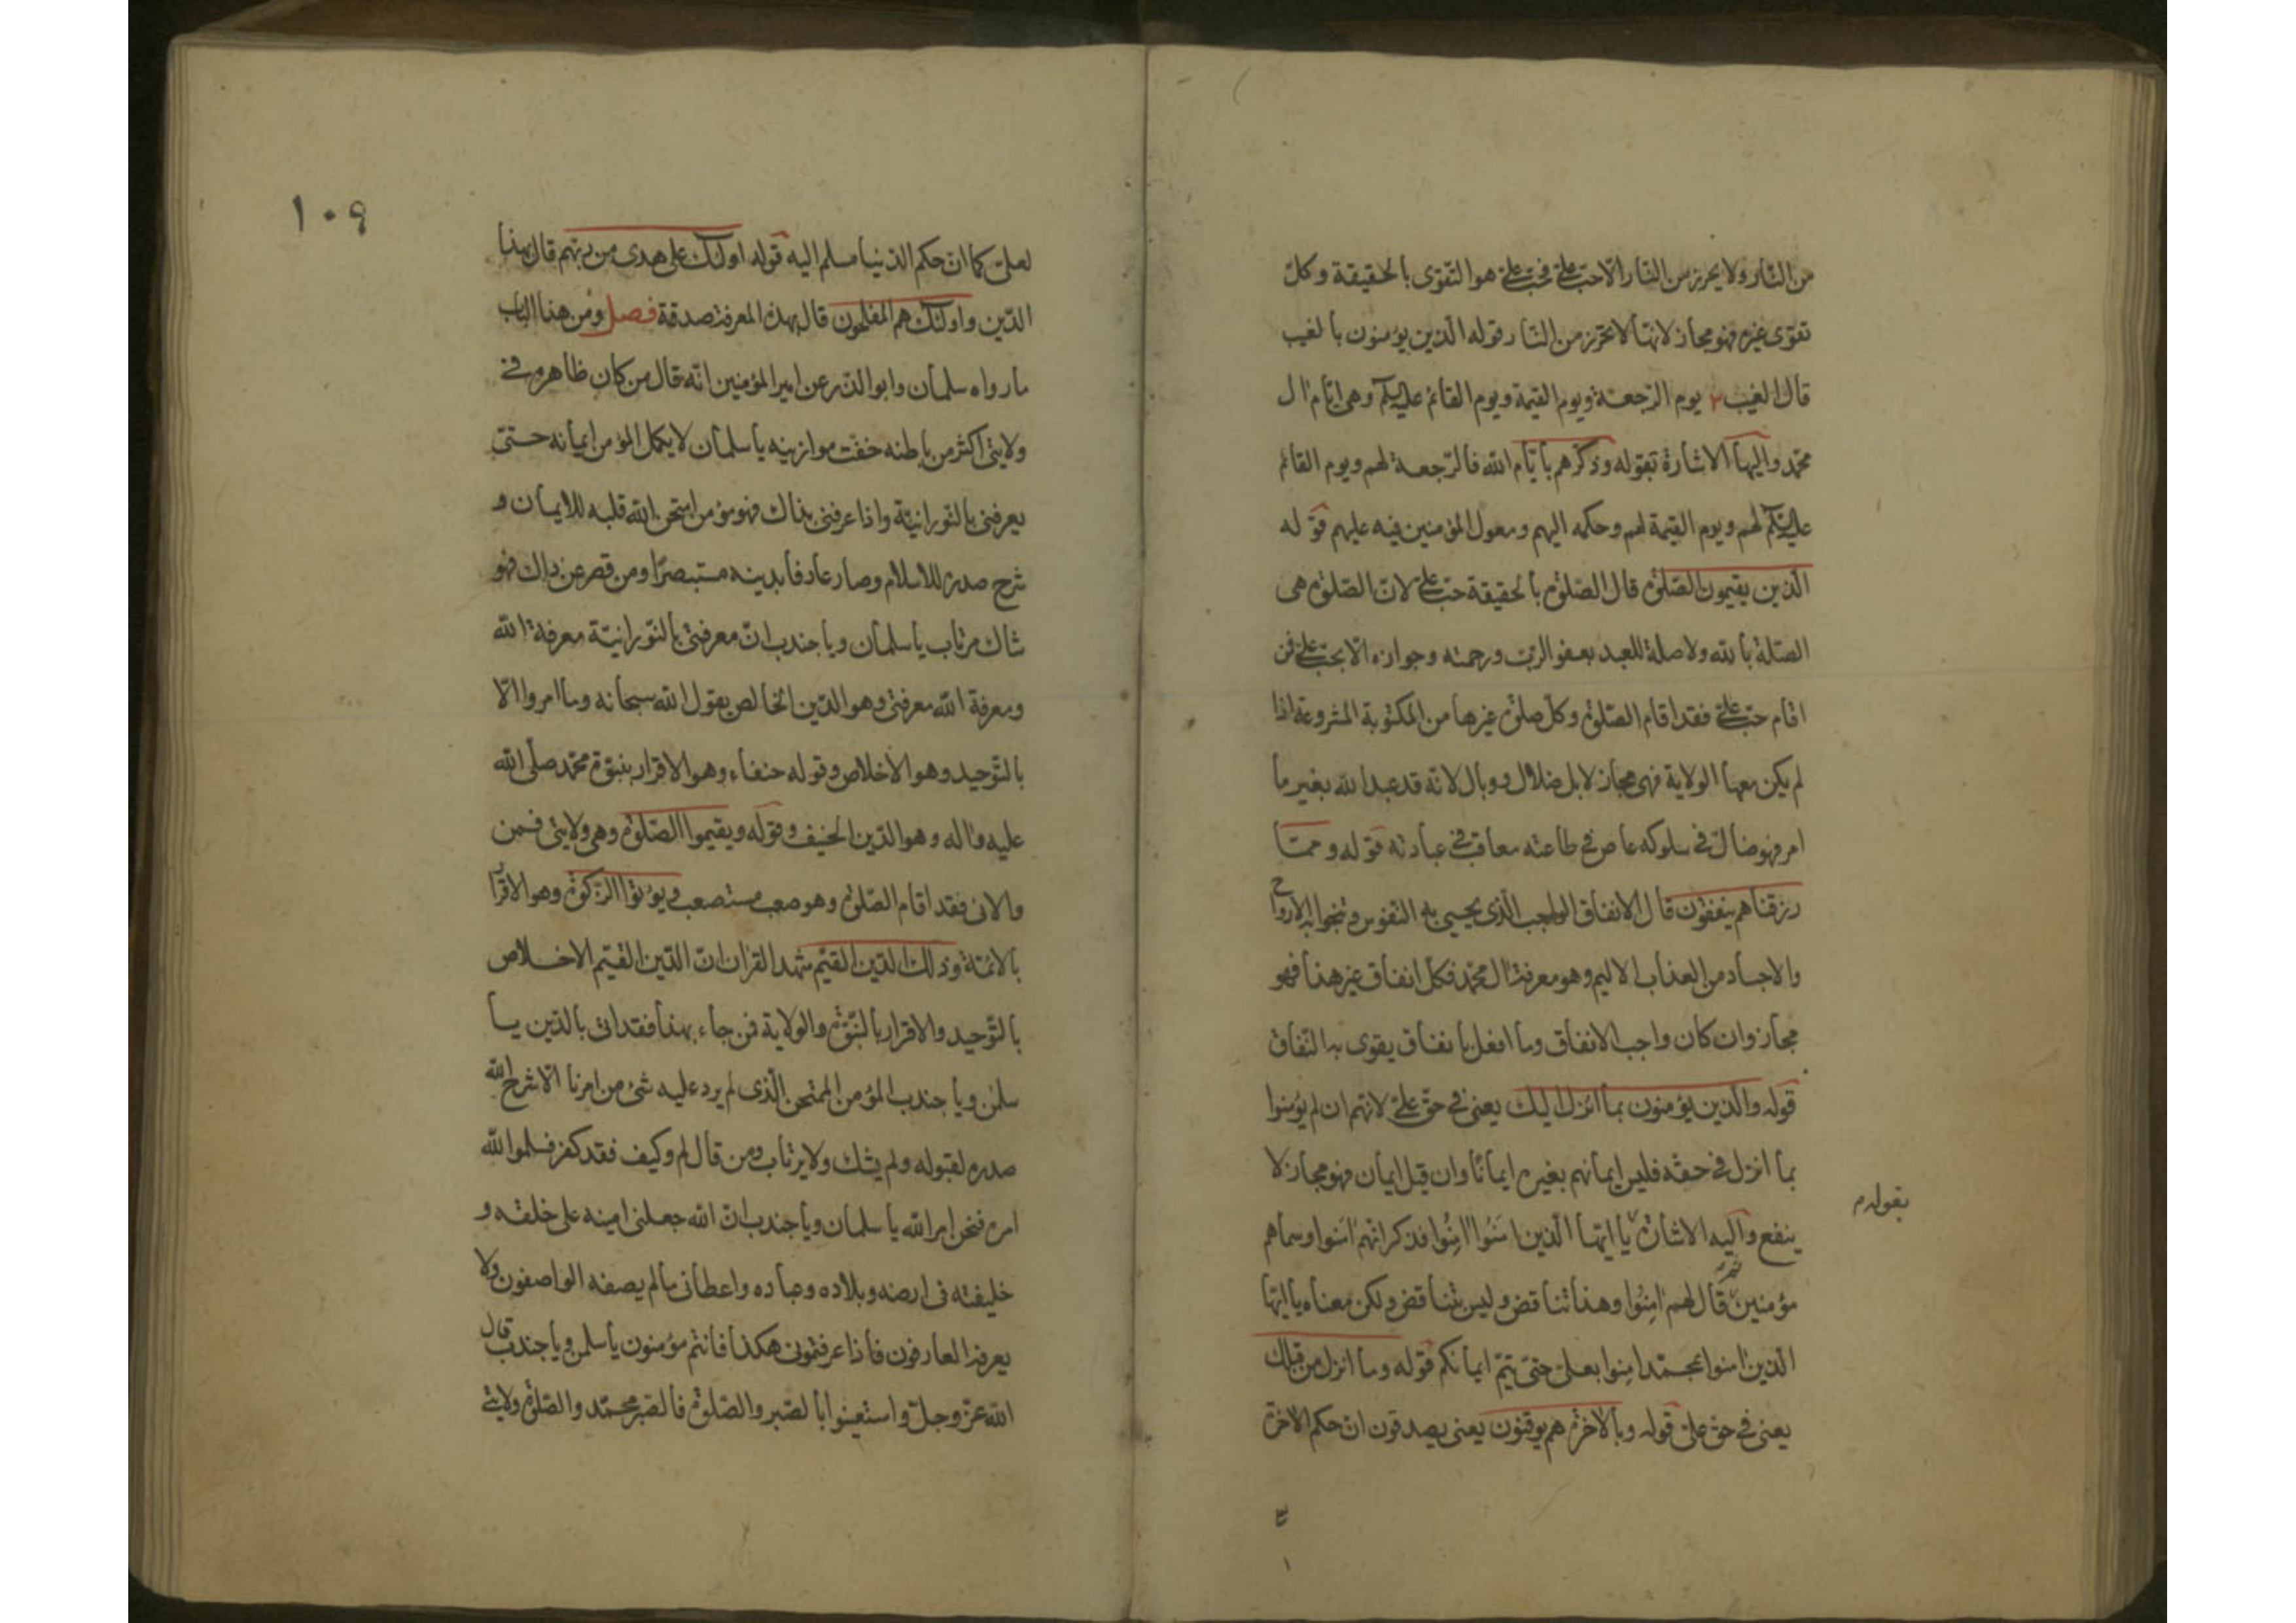 من النار ولا يحرز من النار الا حب علی فحب علی هو التقوی بالحقیقة وكل
تقوی غیره فهو مجاز لانها لا تحرز من النار قوله الذین یؤمنون بالغیب
قال الغیب ۳ یوم الرجعة ویوم القیمة ویوم القائم علیه السلم وهی ایام ال
محمد والیها الاشارة بقوله وذكرهم بایام الله فالرجعة لهم ویوم القائم
علیه السلم لهم ویوم القیمة لهم وحكمه الیهم ومعول المؤمنین فیه علیهم قوله
الذین یقیمون الصلوة قال الصلوة بالحقیقة حب علی لان الصلوة هی
الصلة بالله ولا صلة للعبد بعفو الرب ورحمته وجوازه الا بحب علی فمن
اقام حب علی فقد اقام الصلوة وكل صلوة غیرها من المكتوبة المشروعة اذا
لم یكن معها الولایة فهی مجاز لا بل ضلال ووبال لانه قد عبد الله بغیر ما
امر فهو ضال فی سلوكه عاص فی طاعته معاقب فی عبادته قوله ومما
رزقناهم ینفقون قال الانفاق الواجب الذی یحیی به النفوس وتنجوا به الارواح
والاجساد من العذاب الالیم وهو معرفة ال محمد فكل انفاق غیر هذا فهو
مجاز وان كان واجب الانفاق وما افعل بانفاق یقوی به النفاق
قوله والذین یؤمنون بما انزل الیك یعنی فی حق علی لانهم ان لم یؤمنوا
بما انزل فی حقه فلیس ایمانهم بغیره ایمانا وان قیل ایمان فهو مجاز لا
ینفع والیه الاشارة یا ایها الذین امنوا امنوا فذكر انهم امنوا وسماهم
بقوله م
مؤمنین ثم قال لهم امنوا وهذا تناقض ولیس بتناقض ولكن معناه یا ایها
الذین امنوا بمحمد امنوا بعلی حتی یتم ایمانكم قوله وما انزل من قبلك
یعنی فی حق علی قوله وبالاخرة هم یوقنون یعنی یصدقون ان حكم الاخرة
۱۰۹
لعلی كما ان حكم الدنیا مسلم الیه قوله اولئك علی هدی من ربهم قال بهذا
الدین واولئك هم المفلحون قال بهذه المعرفة صدقة فصل ومن هذا الباب
ما رواه سلمان وابو الذر عن امیر المؤمنین انه قال من كان ظاهره فی
ولایتی اكثر من باطنه خفت موازینه یا سلمان لا یكمل المؤمن ایمانه حتی
یعرفنی بالنورانیة واذا عرفنی بذاك فهو مؤمن امتحن الله قلبه للایمان و
شرح صدره للاسلام وصار عارفا بدینه مستبصرا ومن قصر عن ذلك فهو
شاك مرتاب یا سلمان ویا جندب ان معرفتی بالنورانیة معرفة الله
ومعرفة الله معرفتی وهو الدین الخالص بقول الله سبحانه وما امروا الا
بالتوحید وهو الاخلاص وقوله حنفاء وهو الاقرار بنبوة محمد صلی الله
علیه واله وهو الدین الحنیف وقوله ویقیموا الصلوة وهی ولایتی فمن
والانی فقد اقام الصلوة وهو صعب مستصعب ویؤتوا الزكوة وهو الاقرار
بالائمة وذلك الدین القیم شهد القران ان الدین القیم الاخلاص
بالتوحید والاقرار بالنبوة والولایة فمن جاء بهذا فقد اتی بالدین یا
سلمن ویا جندب المؤمن الممتحن الذی لم یرد علیه شیء من امرنا الا شرح الله
صدره لقبوله ولم یشك ولا یرتاب ومن قال لم وكیف فقد كفر فسلموا لله
امره فنحن امر الله یا سلمان ویا جندب ان الله جعلنی امینه علی خلقه و
خلیفته فی ارضه وبلاده وعباده واعطانی ما لم یصفه الواصفون ولا
یعرفه العارفون فاذا عرفتمونی هكذا فانتم مؤمنون یا سلمن ویا جندب قال
الله عز وجل واستعینوا بالصبر والصلوة فالصبر محمد والصلوة ولایتی